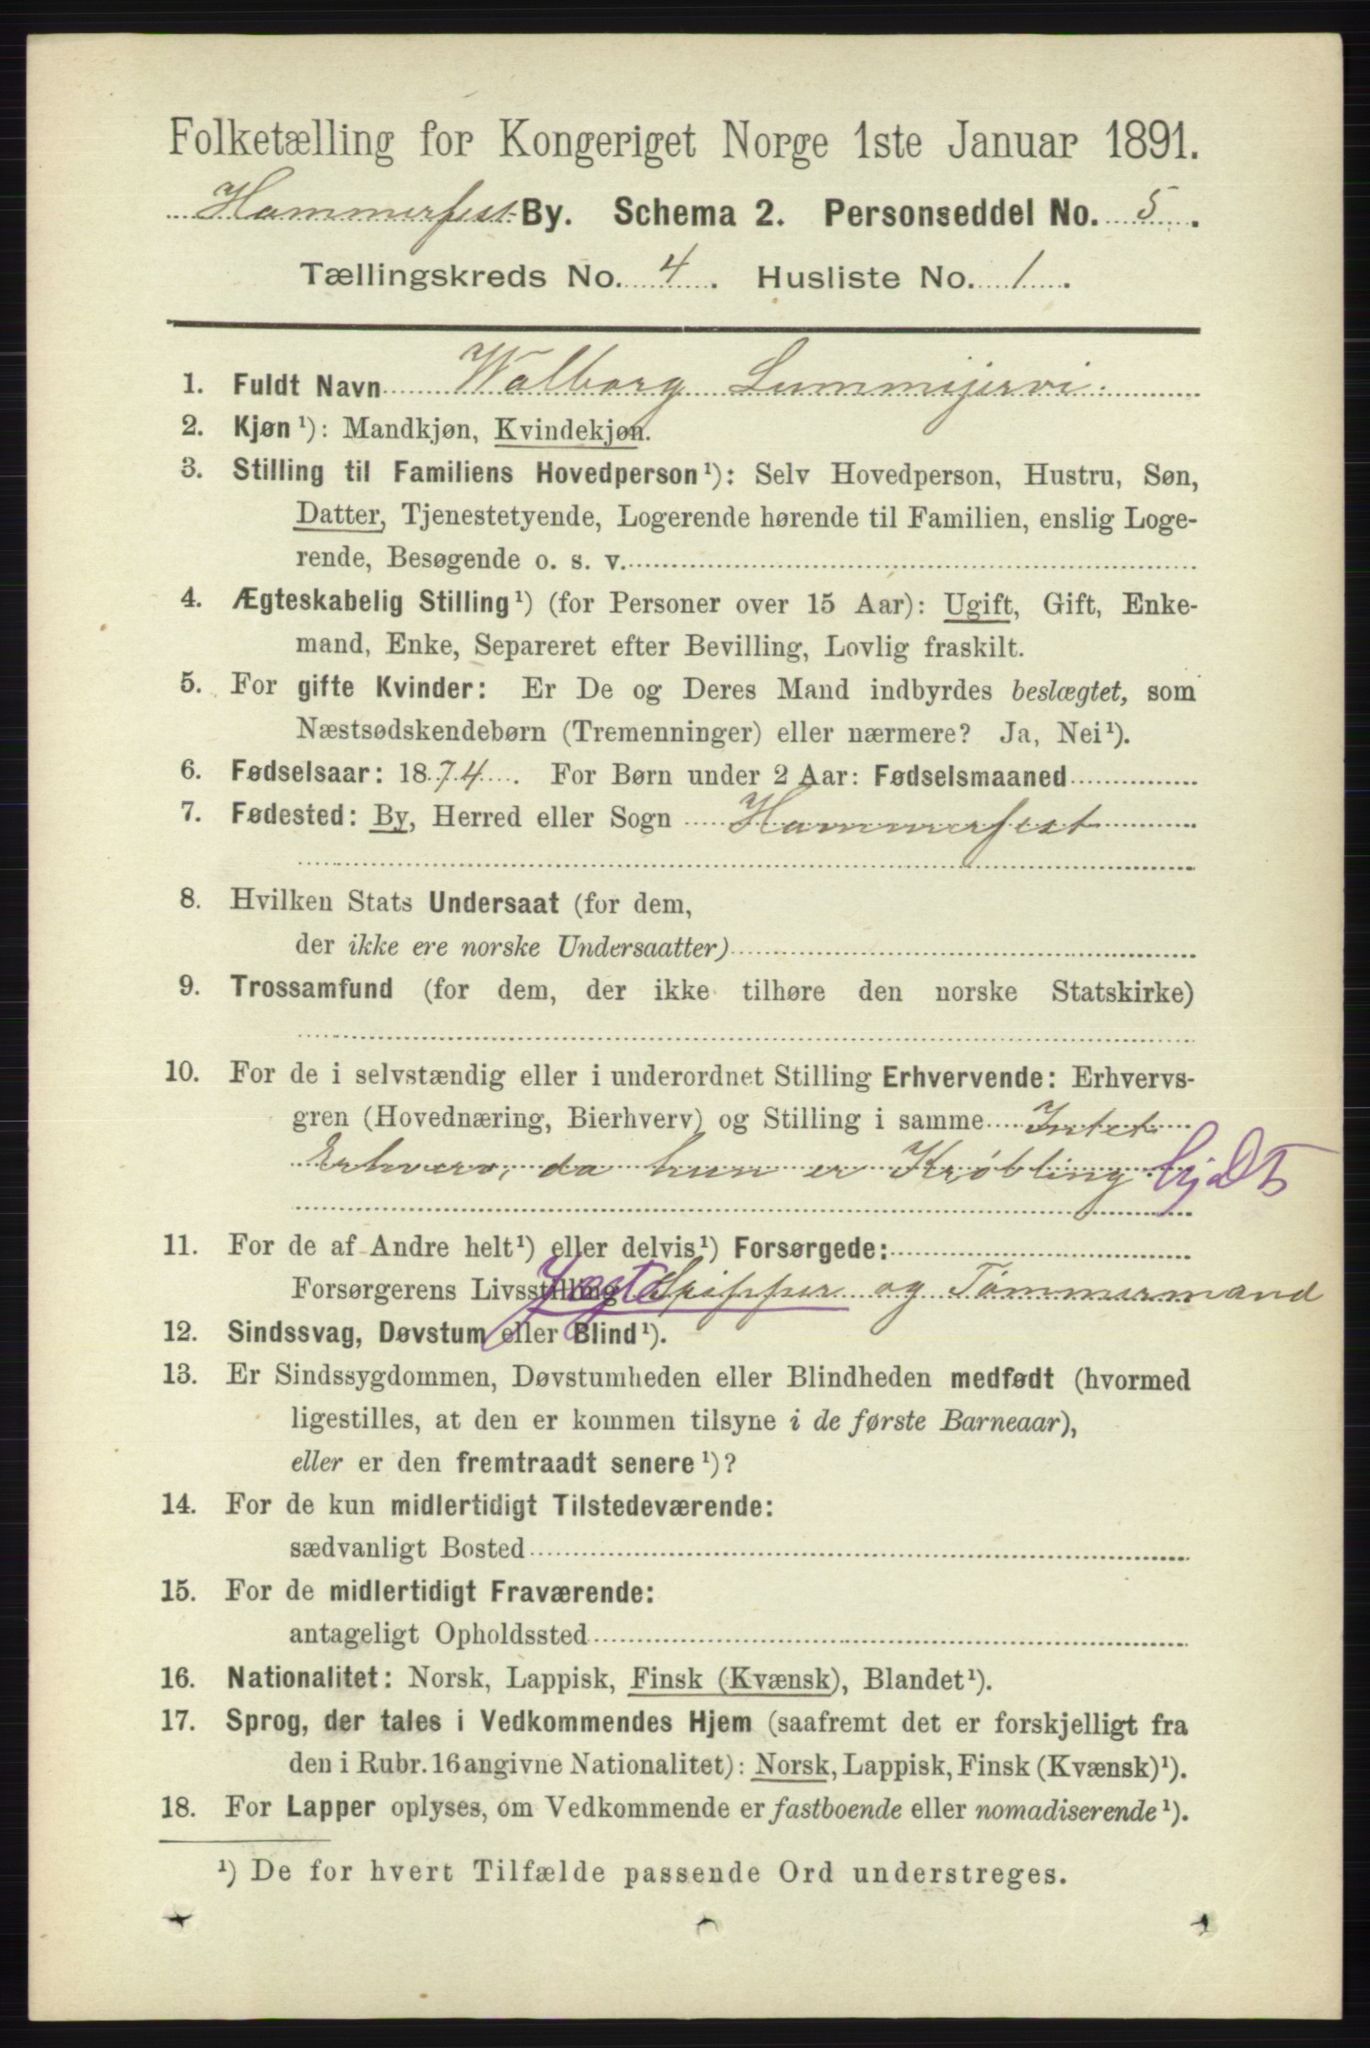 Folketælling for Kongeriget Norge 1ste Januar 1891.
Hammerfest By. Schema 2. Personseddel No. 5.
Tællingskreds No. 4. Husliste No. 1.
1. Fuldt Navn Walborg Lummijervi.
2. Kjøn¹): Mandkjøn, Kvindekjøn.
3. Stilling til Familiens Hovedperson¹): Selv Hovedperson, Hustru, Søn,
Datter, Tjenestetyende, Logerende hørende til Familien, enslig Loge-
rende, Besøgende o. s. v.
4. Ægteskabelig Stilling¹) (for Personer over 15 Aar): Ugift, Gift, Enke-
mand, Enke, Separeret efter Bevilling, Lovlig fraskilt.
5. For gifte Kvinder: Er De og Deres Mand indbyrdes beslægtet, som
Næstsødskendebørn (Tremenninger) eller nærmere? Ja, Nei¹).
6. Fødselsaar: 1874. For Børn under 2 Aar: Fødselsmaaned
7. Fødested: By, Herred eller Sogn Hammerfest
8. Hvilken Stats Undersaat (for dem,
der ikke ere norske Undersaatter)
9. Trossamfund (for dem, der ikke tilhøre den norske Statskirke)
10. For de i selvstændig eller i underordnet Stilling Erhvervende: Erhvervs-
gren (Hovednæring, Bierhverv) og Stilling i samme Intet
Erhverv, da hun er Krøbling
11. For de af Andre helt¹) eller delvis¹) Forsørgede:
Forsørgerens Livsstilling Jagte Skipper og Tømmermand
12. Sindssvag, Døvstum eller Blind¹).
13. Er Sindssygdommen, Døvstumheden eller Blindheden medfødt (hvormed
ligestilles, at den er kommen tilsyne i de første Barneaar),
eller er den fremtraadt senere¹)?
14. For de kun midlertidigt Tilstedeværende:
sædvanligt Bosted
15. For de midlertidigt Fraværende:
antageligt Opholdssted
16. Nationalitet: Norsk, Lappisk, Finsk (Kvænsk), Blandet¹).
17. Sprog, der tales i Vedkommendes Hjem (saafremt det er forskjelligt fra
den i Rubr. 16 angivne Nationalitet): Norsk, Lappisk, Finsk (Kvænsk)¹).
18. For Lapper oplyses, om Vedkommende er fastboende eller nomadiserende¹).
¹) De for hvert Tilfælde passende Ord understreges.